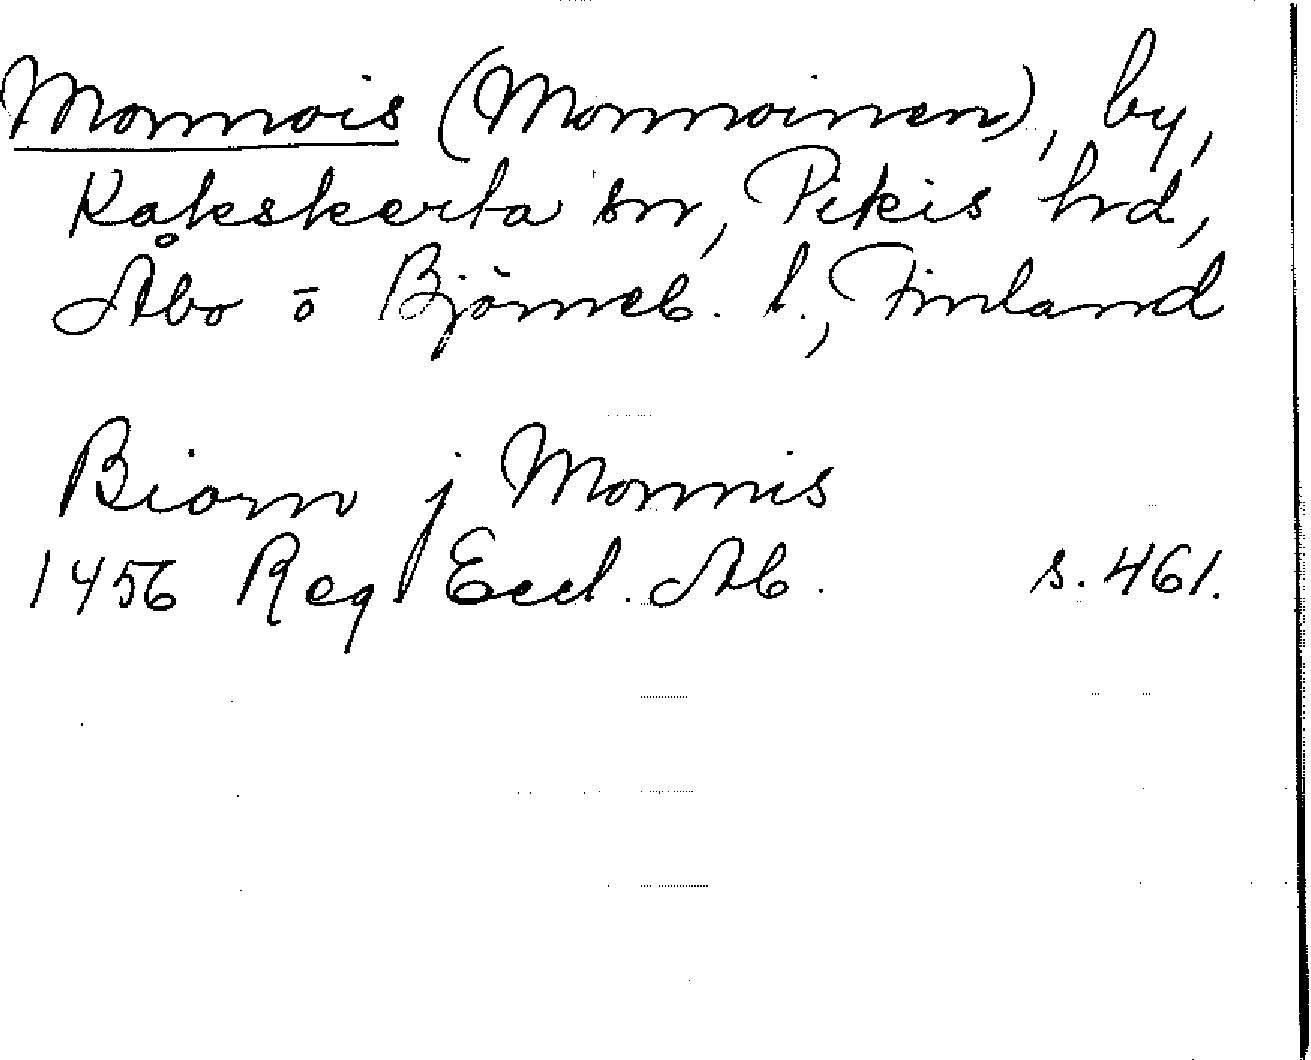 Monnois (Monnoinen), by,
Kakskerta sn, Pikis hrd,
Åbo o Björneb. l., Finland
Biorn j Monnis
1456 Reg Eccl. Ab. s. 461.